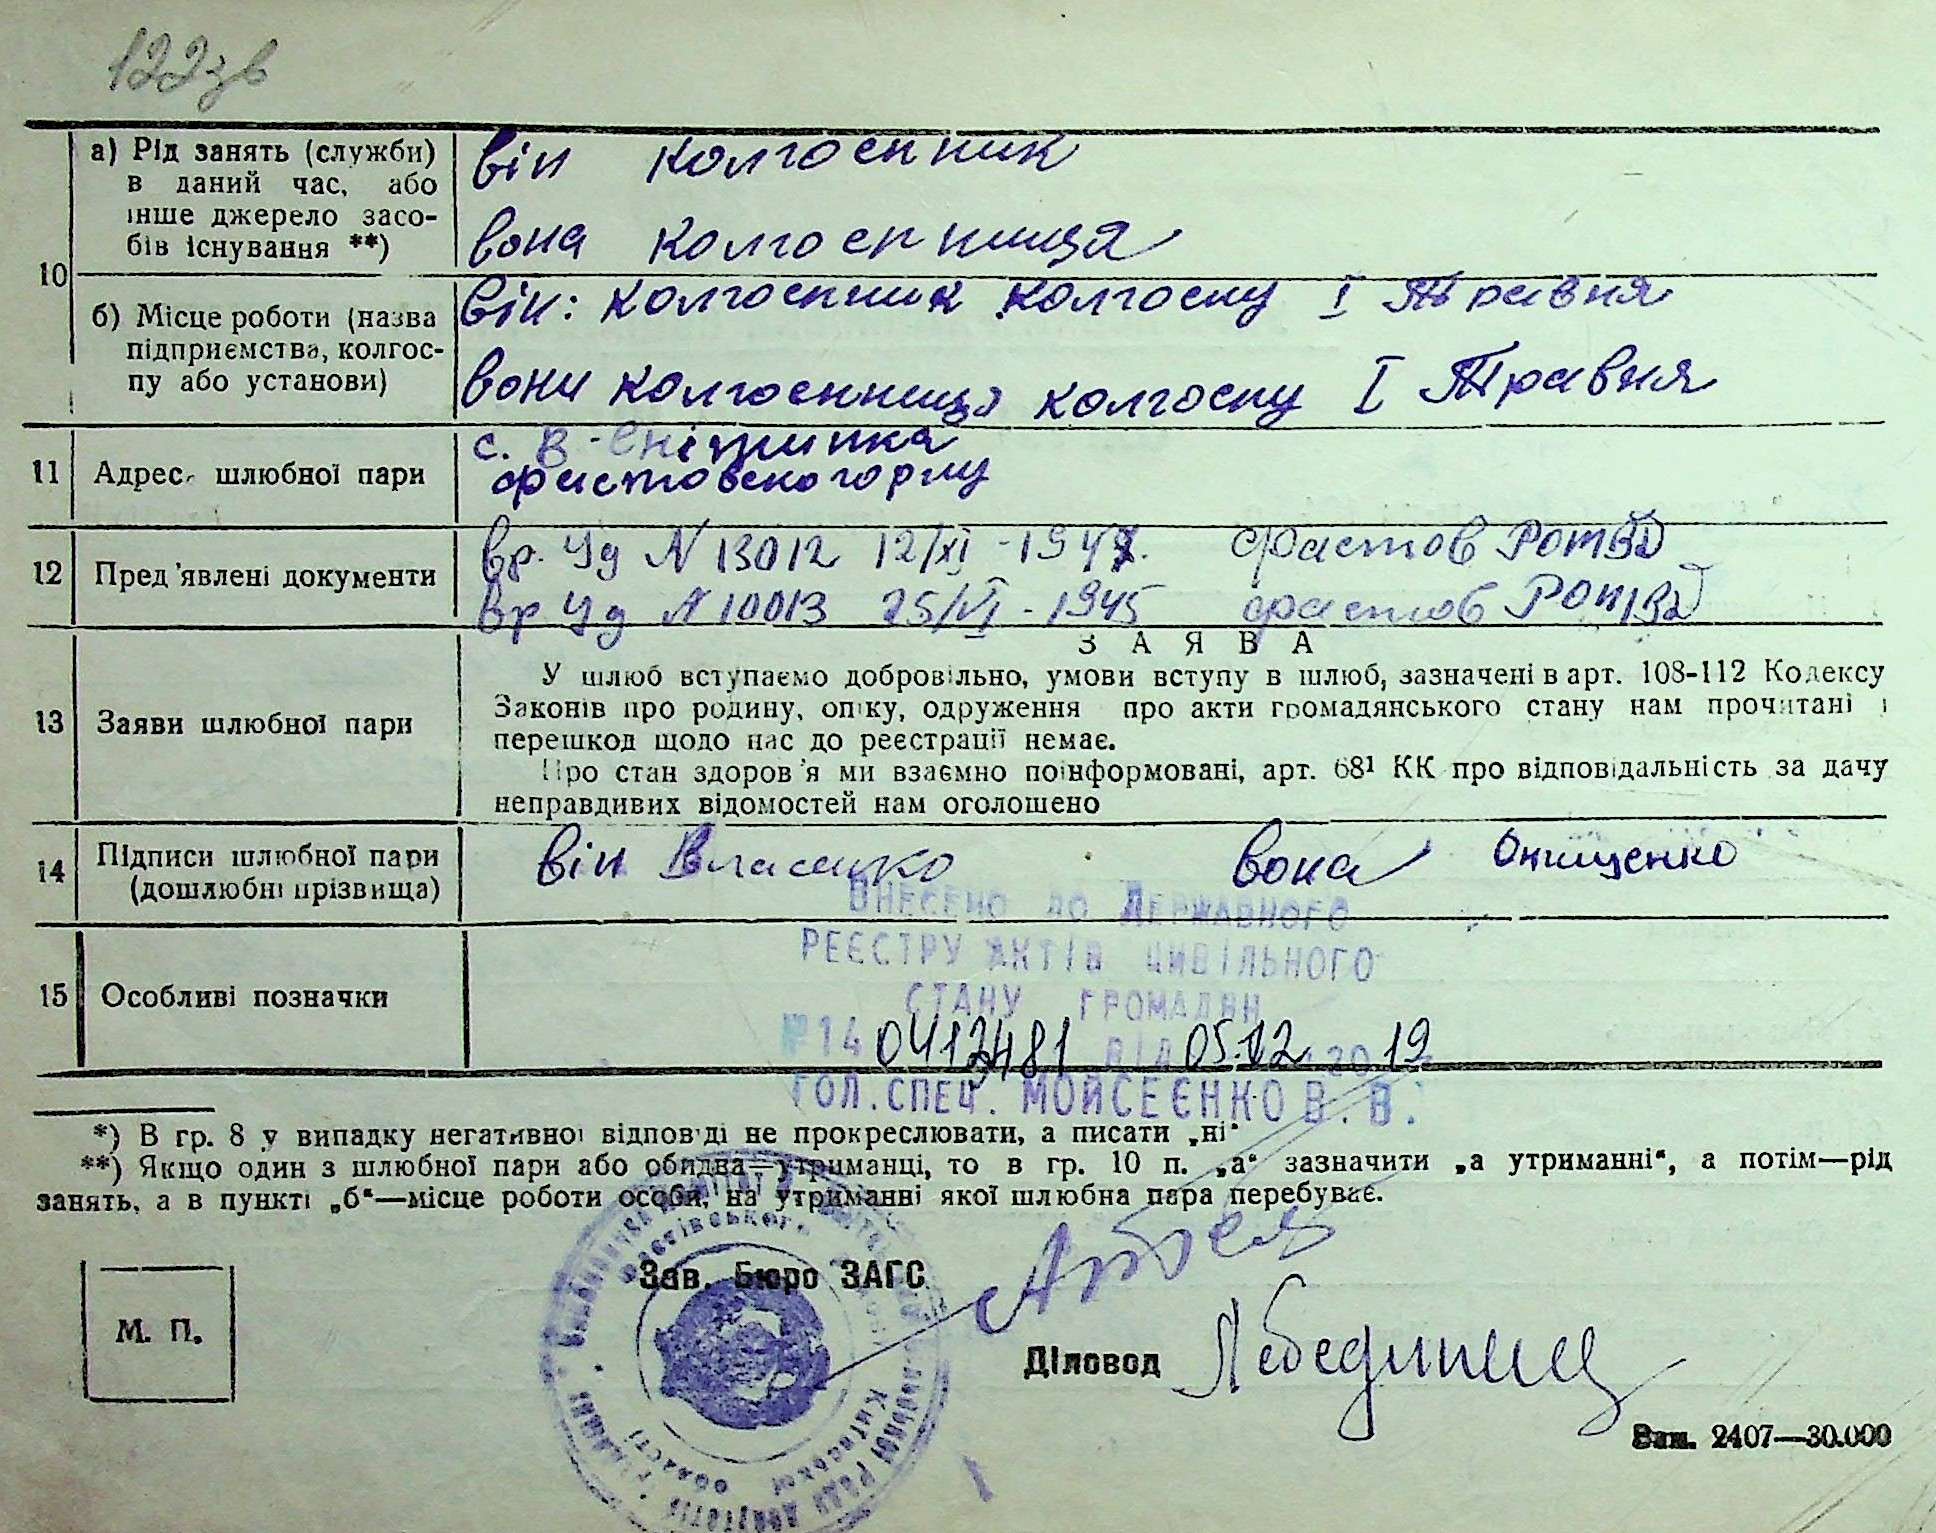 122зв
10
а) Рід занять (служби)
в даний час, або
інше джерело засо-
бів існування **)
він колгоспник
вона колгоспниця
б) Місце роботи (назва
підприємства, колгос-
пу або установи)
він: колгоспник колгоспу І Травня
вони колгоспниця колгоспу І Травня
11 Адрес шлюбної пари
с. В-Снітинка
фастовского р-ну
12 Пред'явлені документи
вр. Уд N 13012 12/XI - 1947. Фастов РОМВД
вр Уд N 10013 25/VI - 1945 фастов РОМВД
13 Заяви шлюбної пари
ЗАЯВА
У шлюб вступаємо добровільно, умови вступу в шлюб, зазначені в арт. 108-112 Кодексу
Законів про родину, опіку, одруження про акти громадянського стану нам прочитані і
перешкод щодо нас до реєстрації немає.
Про стан здоров'я ми взаємно поінформовані, арт. 68¹ КК про відповідальність за дачу
неправдивих відомостей нам оголошено
14 Підписи шлюбної пари
(дошлюбні прізвища)
він Власенко вона Онищенко
15 Особливі позначки
Внесено до Державного
реєстру актів цивільного
стану громадян
№14 0412481 від 05.12 2019
гол.спец. Мойсеєнко В.В.
*) В гр. 8 у випадку негативної відповіді не прокреслювати, а писати „ні“
**) Якщо один з шлюбної пари або обидва—утриманці, то в гр. 10 п. „а“ зазначити „а утриманні“, а потім—рід
занять, а в пункті „б“—місце роботи особи, на утриманні якої шлюбна пара перебуває.
М. П.
Зав. Бюро ЗАГС
Діловод
Київської
області
Зам. 2407—30.000